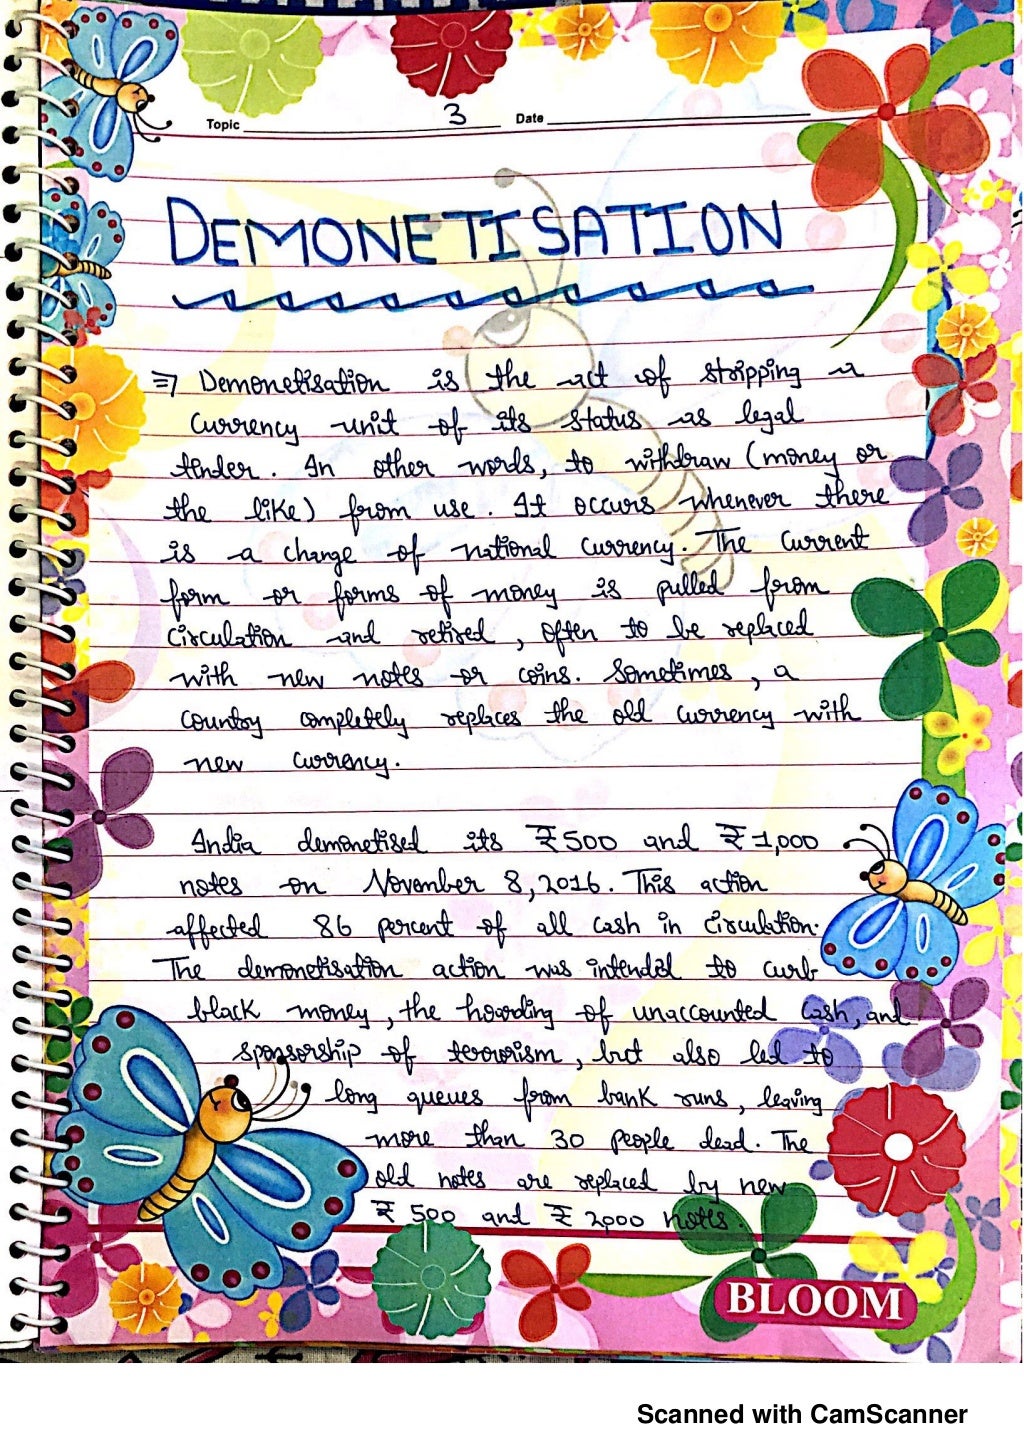 Topic 3 Date
DEMONETISATION
⇒ Demonetisation is the act of stripping a
currency unit of its status as legal
tender. In other words, to withdraw (money or
the like) from use. It occurs whenever there
is a change of national currency. The current
form or forms of money is pulled from
circulation and retired, often to be replaced
with new notes or coins. Sometimes, a
country completely replaces the old currency with
new currency.
India demonetised its ₹500 and ₹1,000
notes on November 8, 2016. This action
affected 86 percent of all cash in circulation.
The demonetisation action was intended to curb
black money, the hoarding of unaccounted cash, and
sponsorship of terrorism, but also led to
long queues from bank runs, leaving
more than 30 people dead. The
old notes are replaced by new
₹ 500 and ₹ 2000 notes.
BLOOM
Scanned with CamScanner